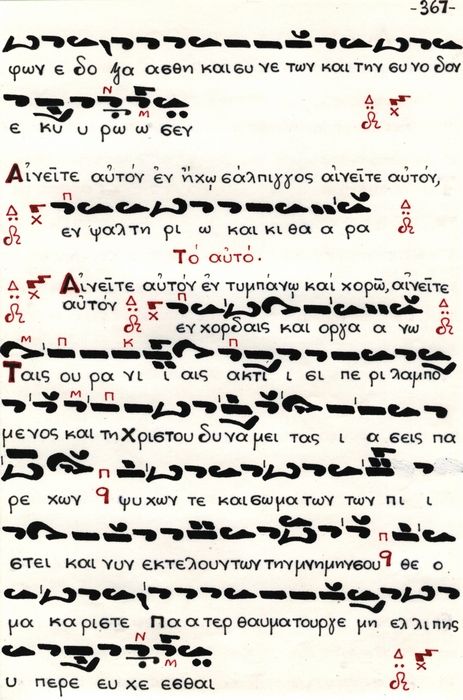 -367-
φων ε δο ξα ασθη και συ νε των και την συ νο δον
ε κυ υ ρω ω σεν
Αἰνεῖτε αὐτόν ἐν ἤχῳ σάλπιγγος αἰνεῖτε αὐτόν,
εν ψαλτη ρι ω και κι θα α ρα
Τό αὐτό.
Αἰνεῖτε αὐτόν ἐν τυμπάνῳ καί χορῶ, αἰνεῖτε
αὐτόν
εν χορδαις και οργα α νω
Ταις ου ρα νι ι αις ακτι ι σι πε ρι λαμπο
μενος και τη Χριστου δυνα μει τας ι α σεις πα
ρε χων ψυ χων τε και σωμα των των πι ι
στει και νυν εκτελουντων την μνημην σου θε ο
μα κα ριστε Πα α τερ θαυματουργε μη ελ λιπης
υ περε ευ χε εσθαι